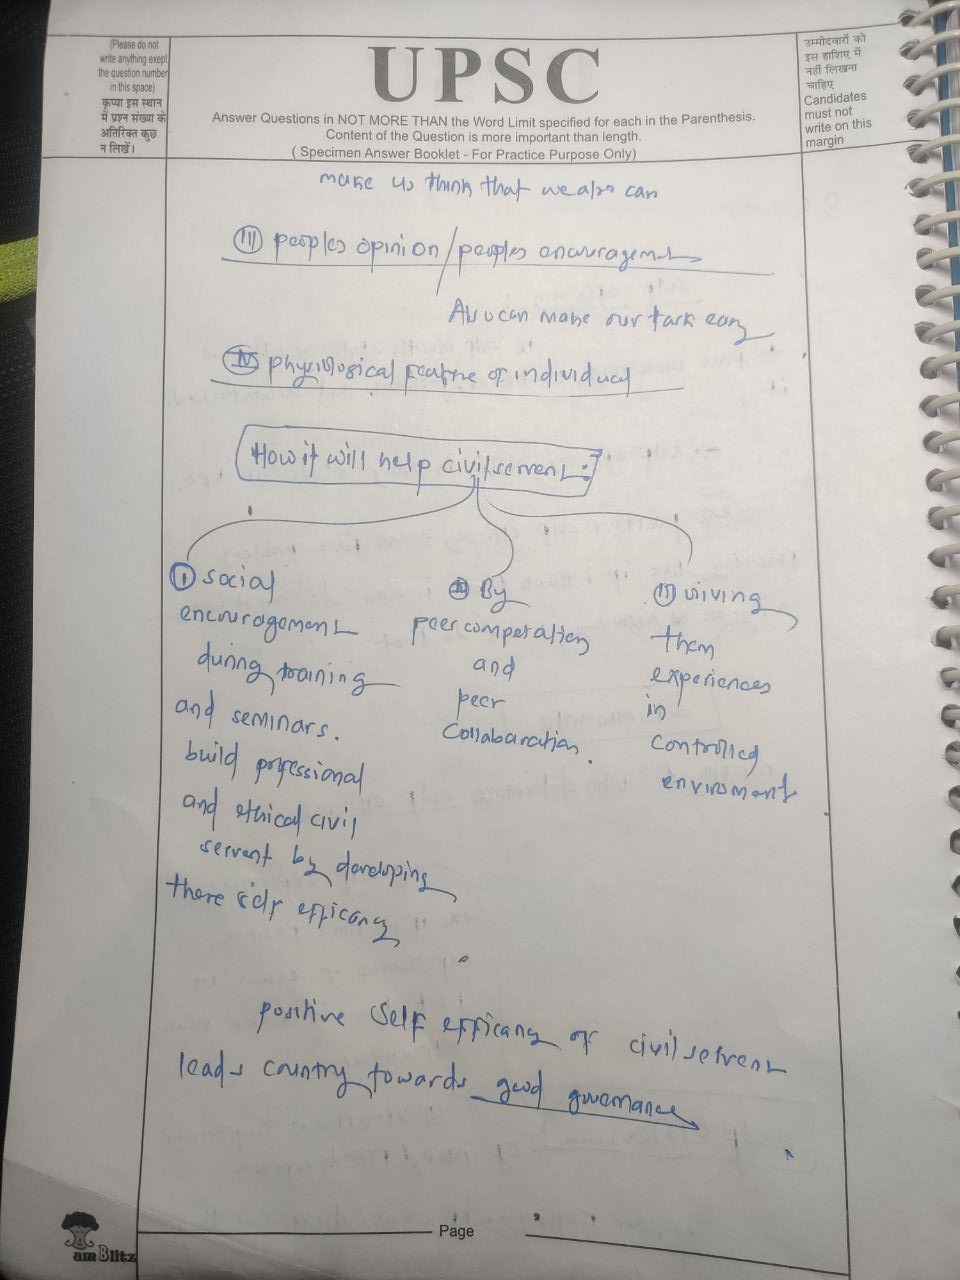 (Please do not
write anything exept
the question number
in this space)
कृप्या इस स्थान
में प्रश्न संख्या के
अतिरिक्त कुछ
न लिखें।
UPSC
Answer Questions in NOT MORE THAN the Word Limit specified for each in the Parenthesis.
Content of the Question is more important than length.
( Specimen Answer Booklet - For Practice Purpose Only)
उम्मीदवारों को
इस हाशिए में
नहीं लिखना
चाहिए
Candidates
must not
write on this
margin
make us think that we also can
(III) peoples opinion/peoples encouragement
Also can make our task easy
(IV) physiological feature of individual
How it will help civil servent:?
(I) social
encouragement
during training
and seminars.
build professional
and ethical civil
servent by developing
there self efficancy
(II) By
peer competation
and
peer
collabaration.
(III) giving
them
experiences
in
controlled
enviroment
positive self efficancy of civil servent
leads country towards good governance
Page
amBlitz